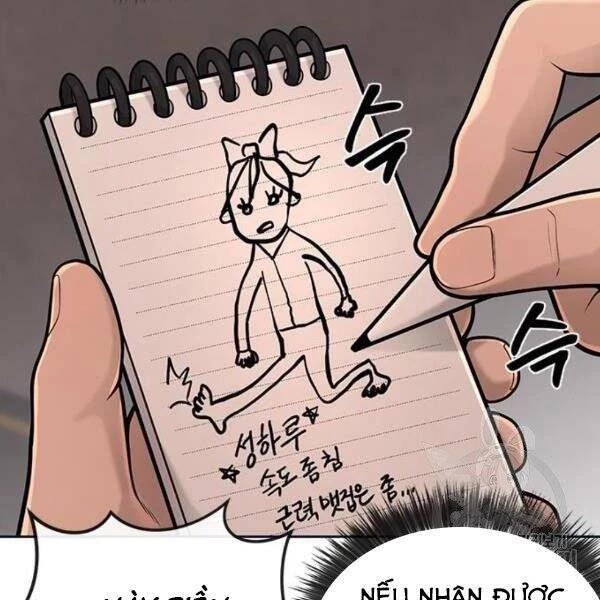 슥
슥
성하루
속도 좀 침
근력 맷집은 좀...
NẾU NHẬN ĐƯỢC